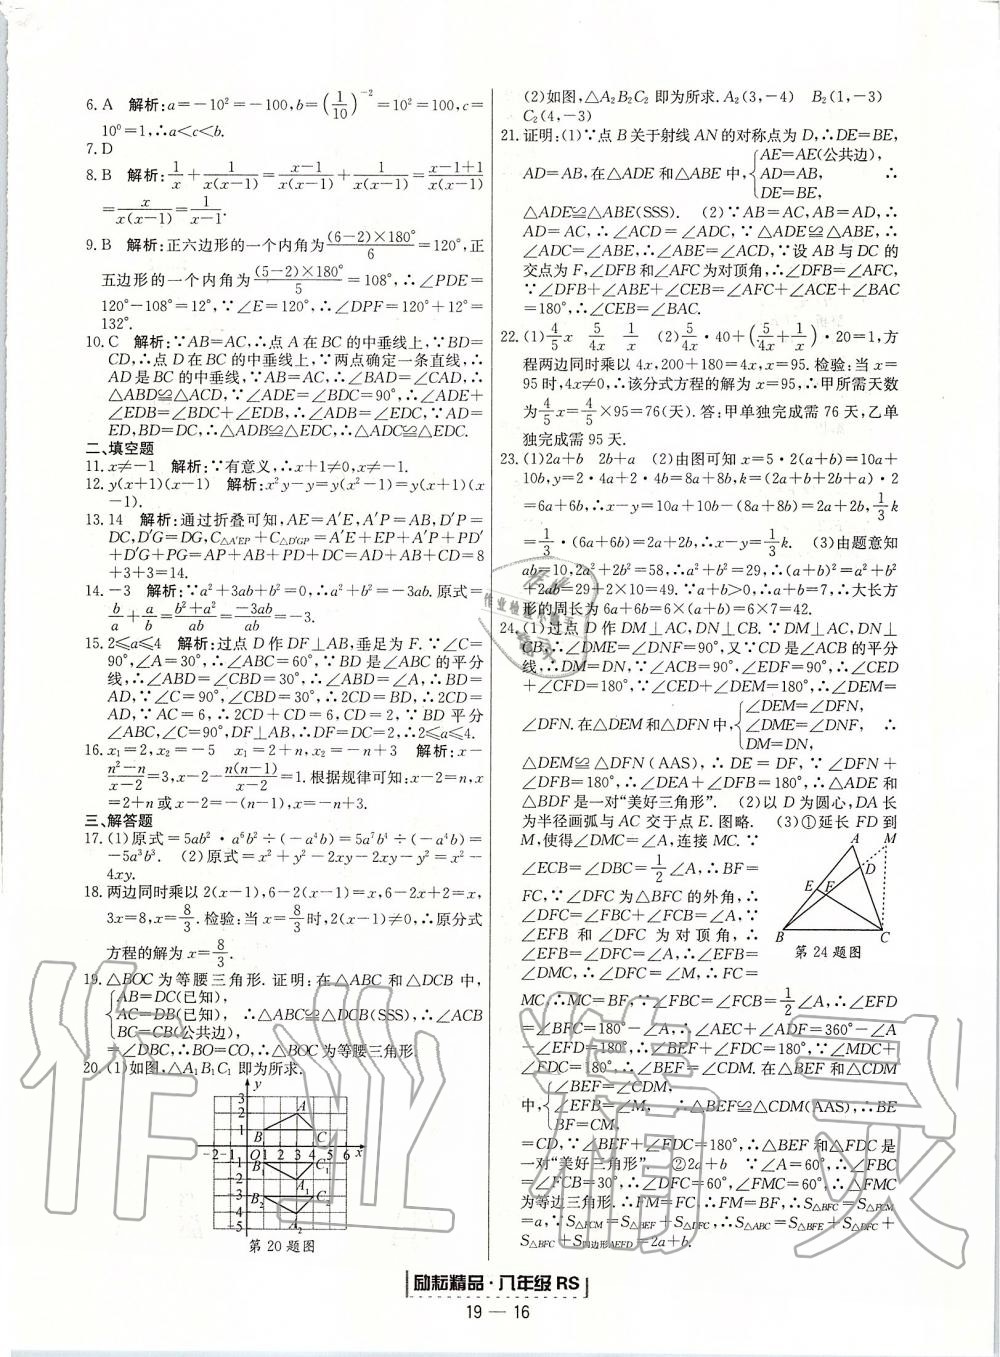 6. A 解析:a=-10²=-100,b=(1/10)⁻²=10²=100,c=
10⁰=1,∴a<c<b.
7. D
8. B 解析:1/x+1/x(x-1)=x-1/x(x-1)+1/x(x-1)=x-1+1/x(x-1)
=x/x(x-1)=1/x-1.
9. B 解析:正六边形的一个内角为(6-2)×180°/6=120°,正
五边形的一个内角为(5-2)×180°/5=108°,∴∠PDE=
120°-108°=12°,∵∠E=120°,∴∠DPF=120°+12°=
132°.
10. C 解析:∵AB=AC,∴点A在BC的中垂线上,∵BD=
CD,∴点D在BC的中垂线上,∵两点确定一条直线,∴
AD是BC的中垂线,∵AB=AC,∴∠BAD=∠CAD,∴
△ABD≌△ACD,∵∠ADE=∠BDC=90°,∴∠ADE+
∠EDB=∠BDC+∠EDB,∴∠ADB=∠EDC,∵AD=
ED,BD=DC,∴△ADB≌△EDC,∴△ADC≌△EDC.
二、填空题
11. x≠-1 解析:∵有意义,∴x+1≠0,x≠-1.
12. y(x+1)(x-1) 解析:x²y-y=y(x²-1)=y(x+1)(x
-1).
13. 14 解析:通过折叠可知,AE=A′E,A′P=AB,D′P=
DC,D′G=DG,C△A′EP+C△D′GP=A′E+EP+A′P+PD′
+D′G+PG=AP+AB+PD+DC=AD+AB+CD=8
+3+3=14.
14. -3 解析:∵a²+3ab+b²=0,∴a²+b²=-3ab.原式=
b/a+a/b=b²+a²/ab=-3ab/ab=-3.
15. 2≤a≤4 解析:过点D作DF⊥AB,垂足为F.∵∠C=
90°,∠A=30°,∴∠ABC=60°,∵BD是∠ABC的平分
线,∴∠ABD=∠CBD=30°,∴∠ABD=∠A,∴BD=
AD,∵∠C=90°,∠CBD=30°,∴2CD=BD,∴2CD=
AD,∵AC=6,∴2CD+CD=6,CD=2,∵BD平分
∠ABC,∠C=90°,DF⊥AB,∴DF=DC=2,∴2≤a≤4.
16. x₁=2,x₂=-5 x₁=2+n,x₂=-n+3 解析:x-
n²-n/x-2=3,x-2-n(n-1)/x-2=1.根据规律可知:x-2=n,x
=2+n或x-2=-(n-1),x=-n+3.
三、解答题
17. (1)原式=5ab²·a⁶b²÷(-a⁴b)=5a⁷b⁴÷(-a⁴b)=
-5a³b³. (2)原式=x²+y²-2xy-2xy=x²+y²=x²-
4xy.
18. 两边同时乘以2(x-1),6-2(x-1)=x,6-2x+2=x,
3x=8,x=8/3.检验:当x=8/3时,2(x-1)≠0,∴原分式
方程的解为x=8/3.
19. △BOC为等腰三角形.证明:在△ABC和△DCB中,
AB=DC(已知),
AC=DB(已知), ∴△ABC≌△DCB(SSS),∴∠ACB
BC=CB(公共边),
=∠DBC,∴BO=CO,∴△BOC为等腰三角形.
20. (1)如图,△A₁B₁C₁即为所求.
第20题图
(2)如图,△A₂B₂C₂即为所求.A₂(3,-4) B₂(1,-3)
C₂(4,-3)
21. 证明:(1)∵点B关于射线AN的对称点为D,∴DE=BE,
AE=AE(公共边),
AD=AB,在△ADE和△ABE中,AD=AB, ∴
DE=BE,
△ADE≌△ABE(SSS). (2)∵AB=AC,AB=AD,∴
AD=AC,∴∠ACD=∠ADC,∵△ADE≌△ABE,∴
∠ADC=∠ABE,∴∠ABE=∠ACD,∵设AB与DC的
交点为F,∠DFB和∠AFC为对顶角,∴∠DFB=∠AFC,
∵∠DFB+∠ABE+∠CEB=∠AFC+∠ACE+∠BAC
=180°,∴∠CEB=∠BAC.
22. (1)4/5x 5/4x 1/x (2)5/4x·40+(5/4x+1/x)·20=1,方
程两边同时乘以4x,200+180=4x,x=95.检验:当x=
95时,4x≠0,∴该分式方程的解为x=95,∴甲所需天数
为4/5x=4/5×95=76(天).答:甲单独完成需76天,乙单
独完成需95天.
23. (1)2a+b 2b+a (2)由图可知x=5·2(a+b)=10a+
10b,y=2·4a+2·4b=8a+8b,k=(2a+b+2b+a)·2
=6a+6b,∴x-y=10a+10b-(8a+8b)=2a+2b,1/3k
=1/3·(6a+6b)=2a+2b,∴x-y=1/3k. (3)由题意知
ab=10,2a²+2b²=58,∴a²+b²=29,∴(a+b)²=a²+b²
+2ab=29+2×10=49.∵a+b>0,∴a+b=7,∴大长方
形的周长为6a+6b=6×(a+b)=6×7=42.
24. (1)过点D作DM⊥AC,DN⊥CB.∵DM⊥AC,DN⊥
CB,∴∠DME=∠DNF=90°,又∵CD是∠ACB的平分
线,∴DM=DN,∵∠ACB=90°,∠EDF=90°,∴∠CED
+∠CFD=180°,∵∠CED+∠DEM=180°,∴∠DEM=
∠DEM=∠DFN,
∠DFN.在△DEM和△DFN中,∠DME=∠DNF, ∴
DM=DN,
△DEM≌△DFN(AAS),∴DE=DF,∵∠DFN+
∠DFB=180°,∴∠DEA+∠DFB=180°,∴△ADE和
△BDF是一对“美好三角形”. (2)以D为圆心,DA长
为半径画弧与AC交于点E.图略. (3)①延长FD到
M,使得∠DMC=∠A,连接MC.∵
∠ECB=∠DBC=1/2∠A,∴BF=
FC,∵∠DFC为△BFC的外角,∴
∠DFC=∠FBC+∠FCB=∠A,∵
∠EFB和∠DFC为对顶角,∴
∠EFB=∠DFC=∠A,∴∠EFB=
∠DMC,∴∠DFC=∠M,∴FC=
第24题图
MC,∴MC=BF,∵∠FBC=∠FCB=1/2∠A,∴∠EFD
=∠BFC=180°-∠A,∴∠AEC+∠ADF=360°-∠A
-∠EFD=180°,∴∠BEF+∠FDC=180°,∵∠MDC+
∠FDC=180°,∴∠BEF=∠CDM.在△BEF和△CDM
∠BEF=∠CDM,
中,∠EFB=∠M, ∴△BEF≌△CDM(AAS),∴BE
BF=CM,
=CD,∵∠BEF+∠FDC=180°,∴△BEF和△FDC是
一对“美好三角形”. ②2a+b ∵∠A=60°,∴∠FBC
=∠FCB=30°,∴∠DFC=60°,∠FMC=60°,∴△FMC
为等边三角形.∴FM=FC,∴FM=BF,∴S△BFC=S△FCM
=a,∵S△FCM=S△BEF+S△DFC,∴S△ABC=S△BFE+S△DFC+
S△BFC+S四边形AEFD=2a+b.
励耘精品·八年级 RS
19 — 16
作业精灵